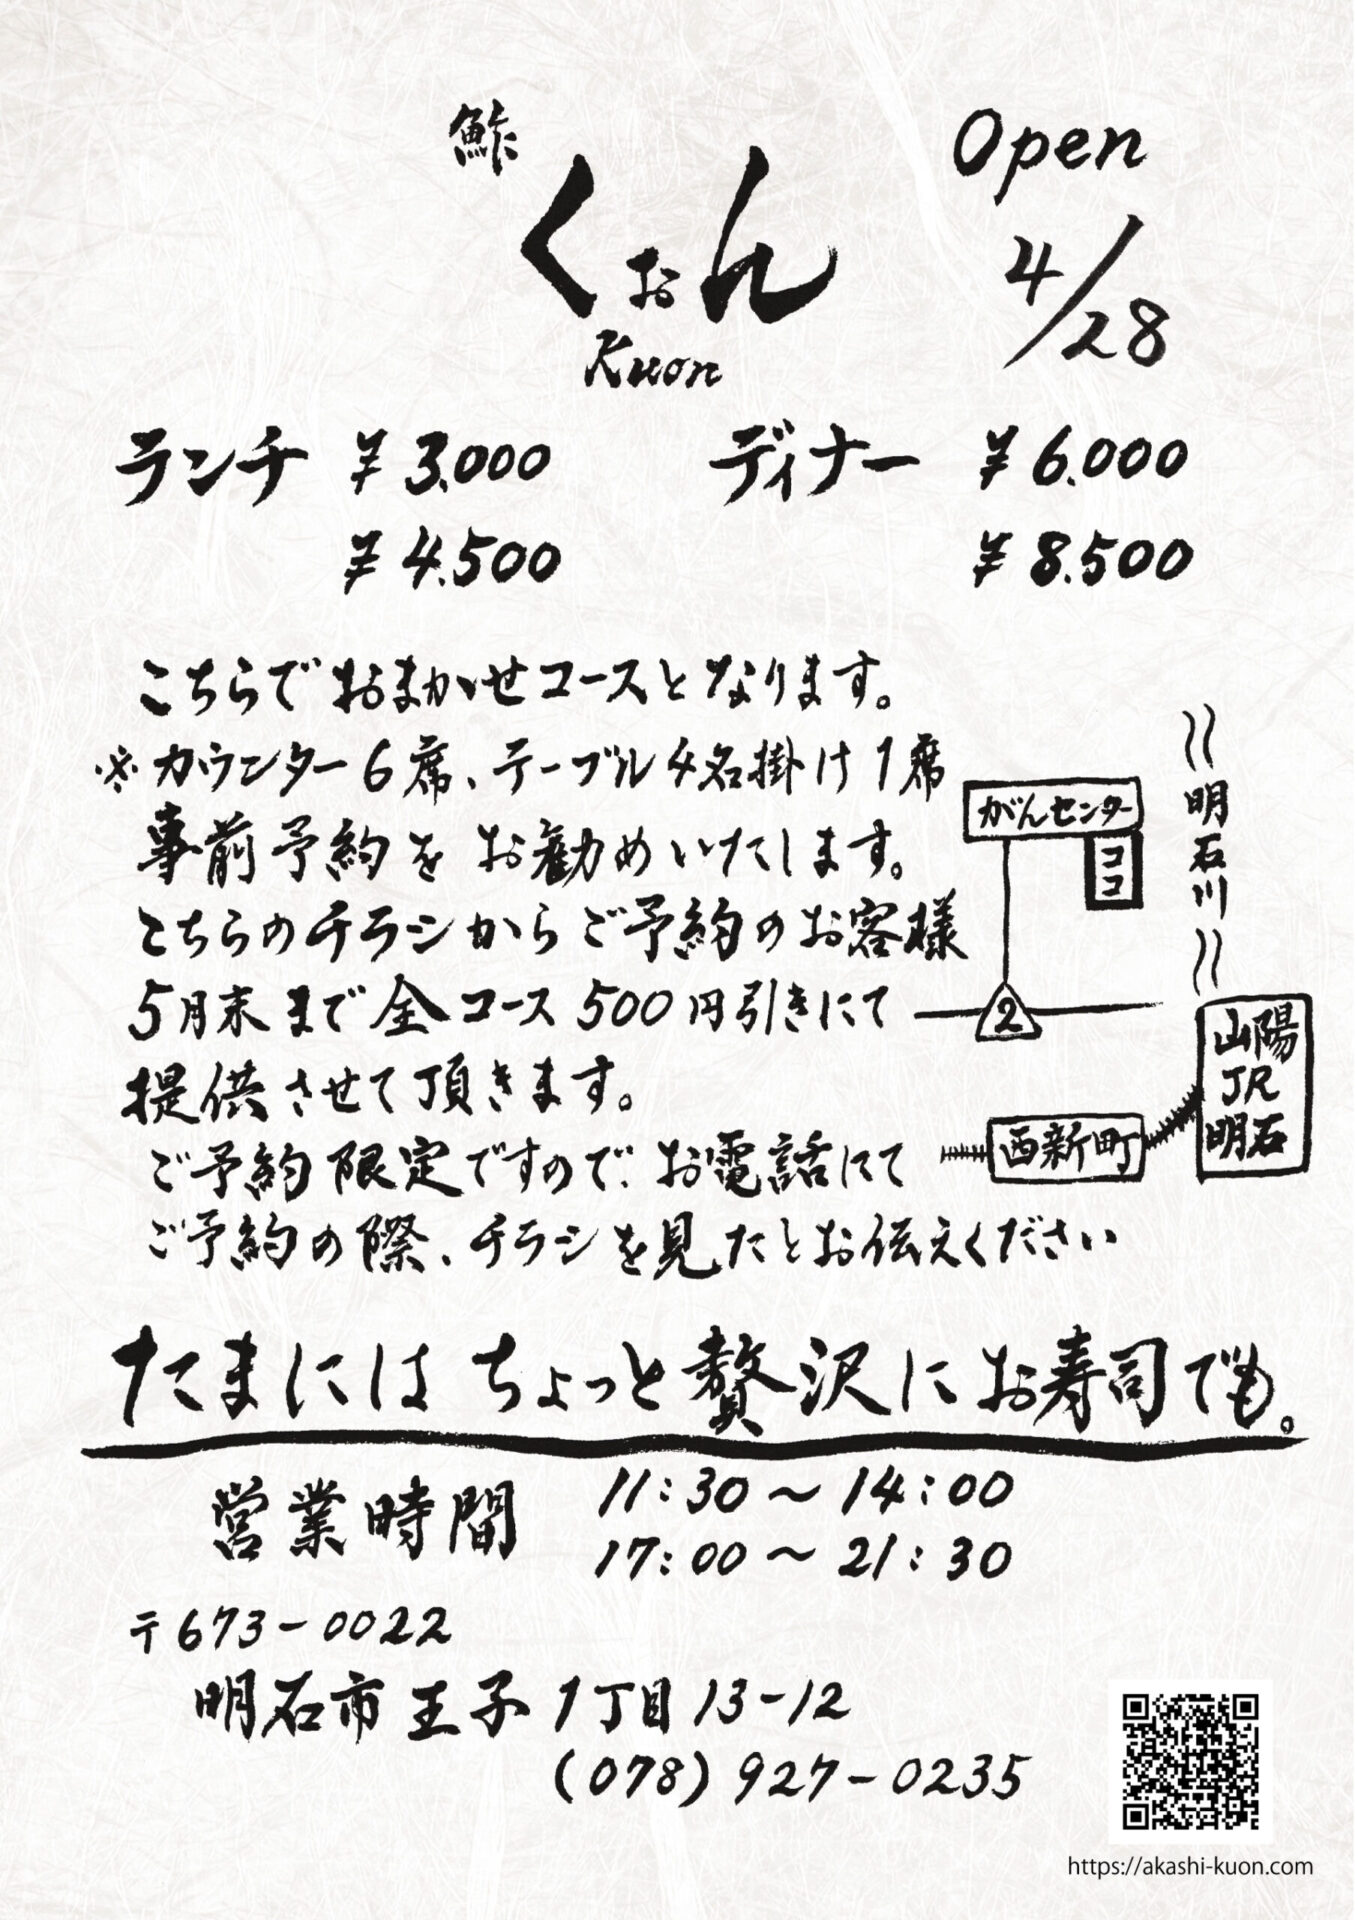 鮓
くおん
Kuon
Open
4/28
ランチ ¥3.000
¥4.500
ディナー ¥6.000
¥8.500
こちらでおまかせコースとなります。
※カウンター6席、テーブル4名掛け1席
事前予約をお勧めいたします。
こちらのチラシからご予約のお客様
5月末まで全コース500円引きにて
提供させて頂きます。
ご予約限定ですので、お電話にて
ご予約の際、チラシを見たとお伝えください
がんセンター
ココ
明石川
2
山陽
JR
明石
西新町
たまにはちょっと贅沢にお寿司でも。
営業時間 11:30~14:00
17:00~21:30
〒673-0022
明石市王子1丁目13-12
(078)927-0235
https://akashi-kuon.com